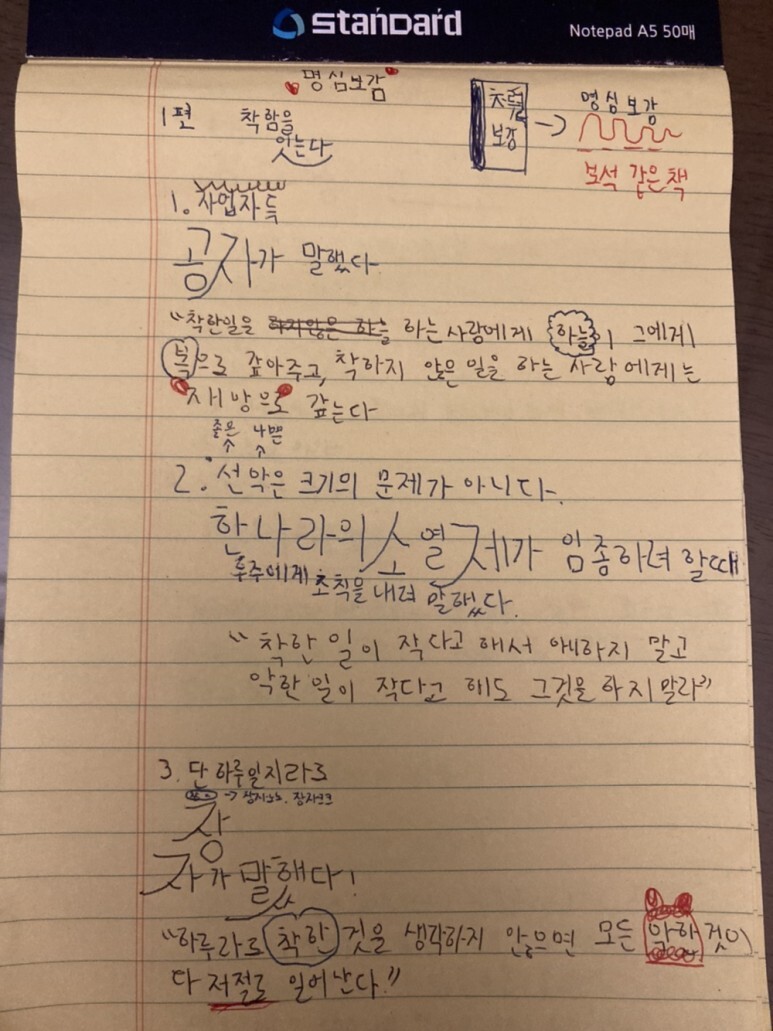 standard
Notepad A5 50매
명심보감
1편 착함을
잇는다
보감
명심보감
보석 같은 책
1. 자업자득
공자가 말했다.
"착한일을 하지않은 하늘 하는 사람에게 하늘이 그에게
복으로 갚아주고, 착하지 않은 일을 하는 사람에게는
재앙으로 갚는다
좋은 나쁜
2. 선악은 크기의 문제가 아니다.
한나라의 소열제가 임종하려 할때
후주에게 조칙을 내려 말했다.
"착한 일이 작다고 해서 아니하지 말고
악한 일이 작다고 해도 그것을 하지 말라"
3. 단 하루일지라도
장
자가 말했다!
"하루라도 착한 것을 생각하지 않으면 모든 악한 것이
다 저절로 일어난다."